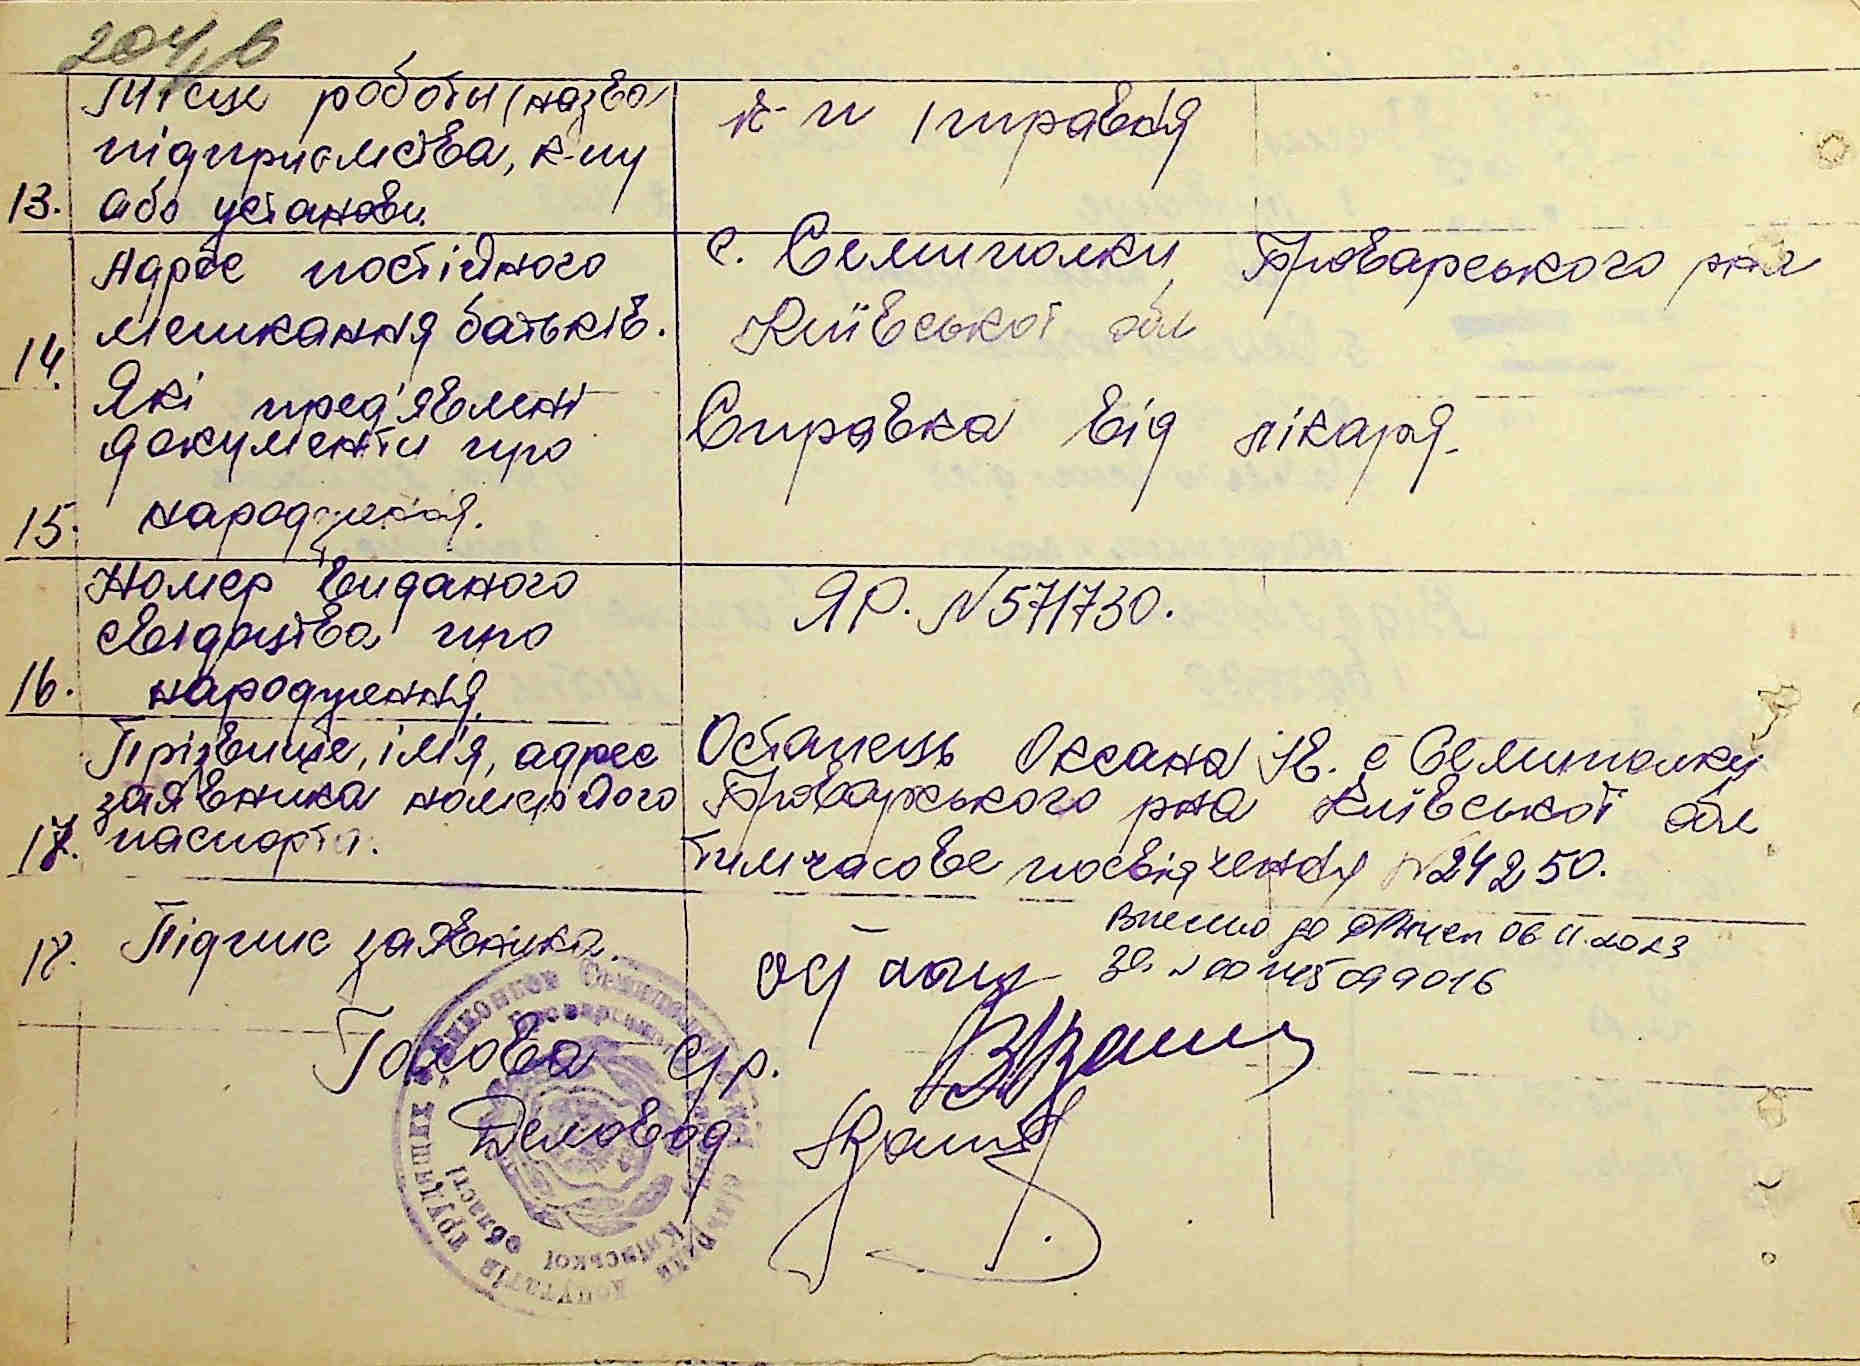 204, б
Місце роботы (назва
підприємства, к-пу
13. або установи.
к-п Іправлія
Адрес постійного
14. мешкання батьків.
с. Семиполки Броварського рна
Київської обл
Які пред'явлені
документи про
15. народження.
Справка від лікаря.
Номер виданого
свідоцтва про
16. народження.
ЯР. №571730.
Прізвище, ім'я, адрес
заявника номер його
17. паспорта.
Остапець Оксана Як. с Семиполки
Броварського рна Київської обл
тимчасове посвідчення №24250.
18. Підпис заявника.
Внесено до 06 11.2023
Голова с/р.
Деловод.
Київської області
депутатів трудящих